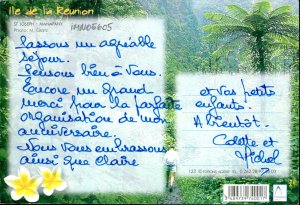 Ile de la Réunion
ST JOSEPH - MANAPANY
Photo: N. 
IMN05605
Passons un agréable
séjour.
Pensons bien à vous.
Encore un grand
merci pour la parfaite
organisation de mon
anniversaire.
Nous vous embrassons
ainsi que Claire
et vos petits
enfants.
A bientôt.
Colette et
Michel